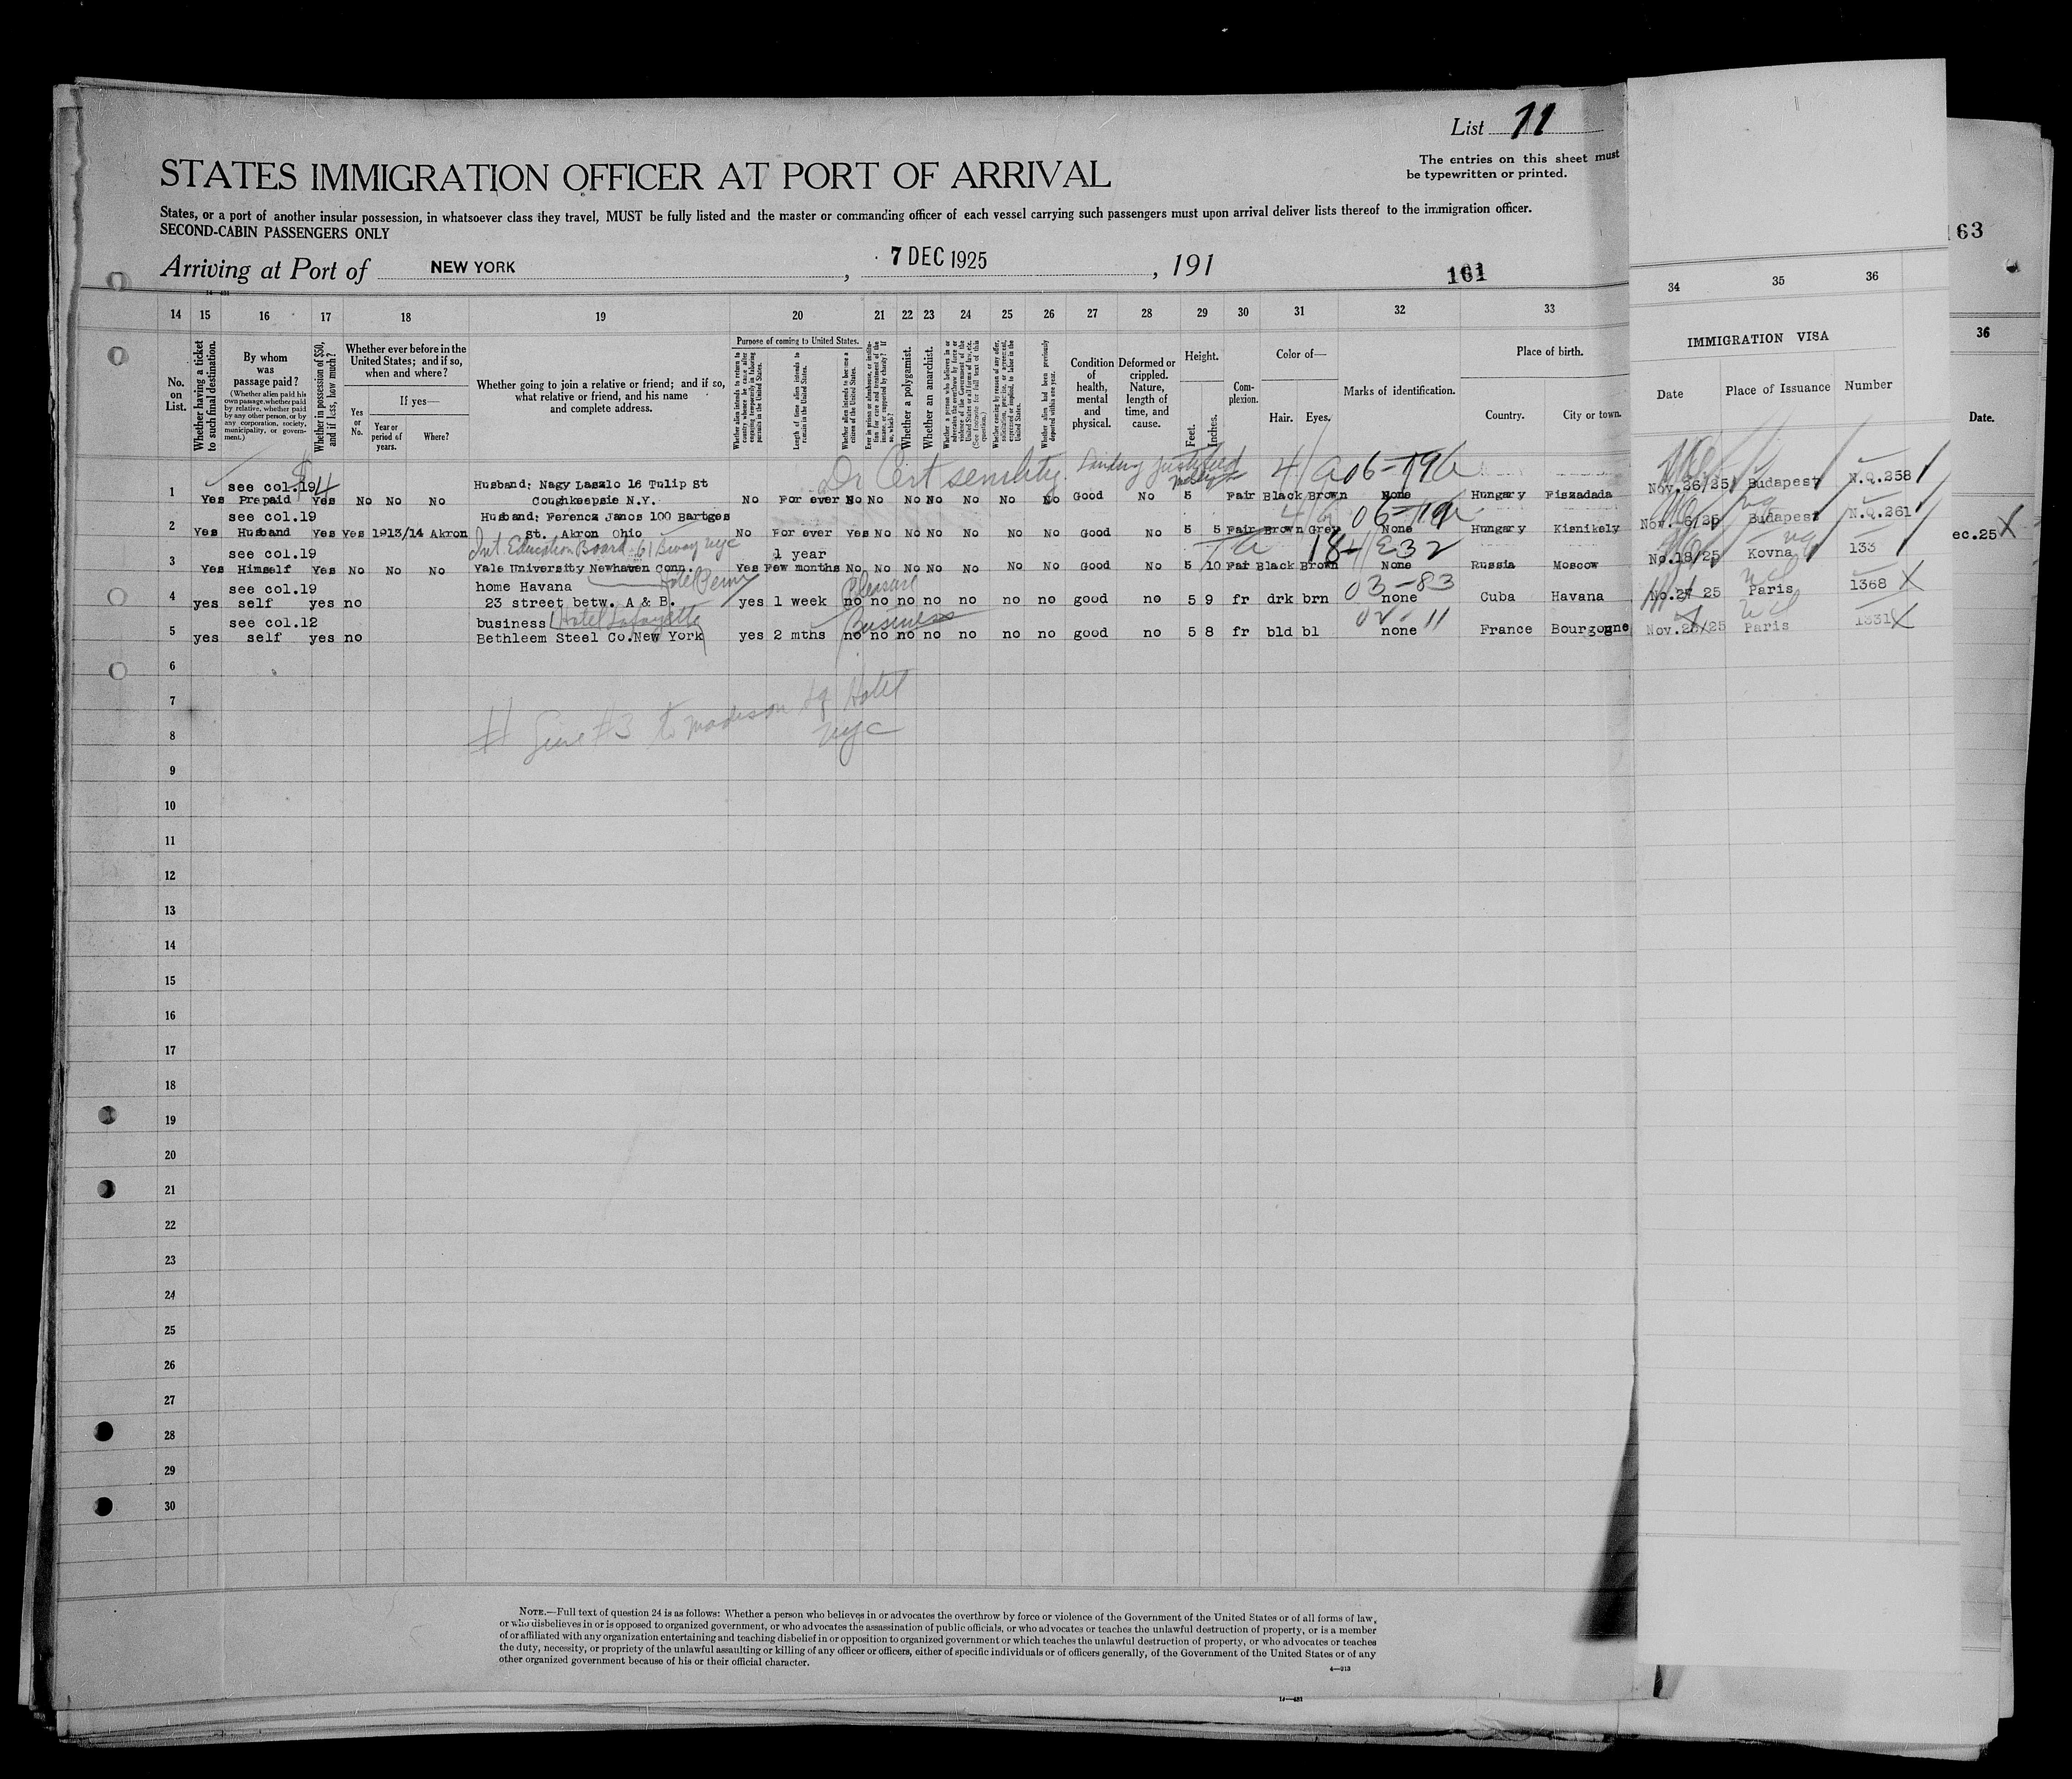 List 11
The entries on this sheet must
be typewritten or printed.
STATES IMMIGRATION OFFICER AT PORT OF ARRIVAL
States, or a port of another insular possession, in whatsoever class they travel, MUST be fully listed and the master or commanding officer of each vessel carrying such passengers must upon arrival deliver lists thereof to the immigration officer.
SECOND-CABIN PASSENGERS ONLY
163
Arriving at Port of NEW YORK , 7 DEC 1925 , 191 161
14 15 16 17 18 19 20 21 22 23 24 25 26 27 28 29 30 31 32 33 34 35 36
36
No. on List.
Whether having a ticket to such final destination.
By whom was passage paid?
(Whether alien paid his own passage, whether paid by relative, whether paid by any other person, or by any corporation, society, municipality, or government.)
Whether in possession of $50, and if less, how much?
Whether ever before in the United States; and if so, when and where?
Yes or No.
If yes—
Year or period of years.
Where?
Whether going to join a relative or friend; and if so, what relative or friend, and his name and complete address.
Purpose of coming to United States.
Length of time alien intends to remain in the United States.
Whether alien intends to become a citizen of the United States.
Whether a polygamist.
Whether an anarchist.
Condition of health, mental and physical.
Deformed or crippled. Nature, length of time, and cause.
Height.
Feet.
Inches.
Complexion.
Color of—
Hair.
Eyes.
Marks of identification.
Place of birth.
Country.
City or town.
IMMIGRATION VISA
Date Place of Issuance Number
Date.
see col.19 Husband: Nagy Laszlo 16 Tulip St
1 Yes Prepaid Yes No No No Coughkeepsie N.Y. No For ever No No No No No No No Good No 5 Fair Black Brown None Hungary Fiszadada Nov.26/25 Budapest N.Q.258
see col.19 Husband: Ferencz Janos 100 Bartges
2 Yes Husband Yes Yes 1913/14 Akron St. Akron Ohio No For ever Yes No No No No No No Good No 5 5 Fair Brown Grey None Hungary Kisnikely Nov.-6/25 Budapest N.Q.261
ec.25
Int. Education Board 61 Bway nyc
see col.19 1 year
3 Yes Himself Yes No No No Yale University Newhaven Conn. Yes Few months No No No No No No No Good No 5 10 Fair Black Brown None Russia Moscow No.18/25 Kovna 133
see col.19 home Havana Pleasure 03-83
4 yes self yes no 23 street betw. A & B. yes 1 week no no no no no no no good no 5 9 fr drk brn none Cuba Havana No.27 25 Paris 1368
see col.12 business Hotel Lafayette Business 02-11
5 yes self yes no Bethleem Steel Co.New York yes 2 mths no no no no no no no good no 5 8 fr bld bl none France Bourgogne Nov.28/25 Paris 1331
6
7
# Give #3 to Madison Sq Hotel
nyc
8
9
10
11
12
13
14
15
16
17
18
19
20
21
22
23
24
25
26
27
28
29
30
NOTE.—Full text of question 24 is as follows: Whether a person who believes in or advocates the overthrow by force or violence of the Government of the United States or of all forms of law,
or who disbelieves in or is opposed to organized government, or who advocates the assassination of public officials, or who advocates or teaches the unlawful destruction of property, or is a member
of or affiliated with any organization entertaining and teaching disbelief in or opposition to organized government or which teaches the unlawful destruction of property, or who advocates or teaches
the duty, necessity, or propriety of the unlawful assaulting or killing of any officer or officers, either of specific individuals or of officers generally, of the Government of the United States or of any
other organized government because of his or their official character.